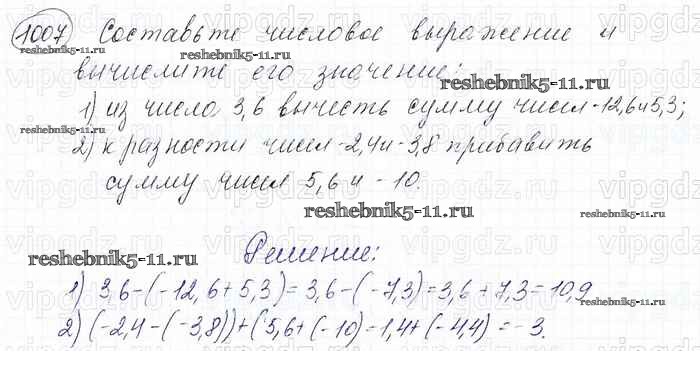 1007 Составьте числовое выражение и
вычислите его значение:
1) из числа 3,6 вычесть сумму чисел -12,6 и 5,3;
2) к разности чисел -2,4 и -3,8 прибавить
сумму чисел 5,6 и -10.
Решение:
1) 3,6-(-12,6+5,3)=3,6-(-7,3)=3,6+7,3=10,9
2) (-2,4-(-3,8))+(5,6+(-10)=1,4+(-4,4)=-3.
reshebnik5-11.ru
reshebnik5-11.ru
reshebnik5-11.ru
reshebnik5-11.ru
reshebnik5-11.ru
reshebnik5-11.ru
reshebnik5-11.ru